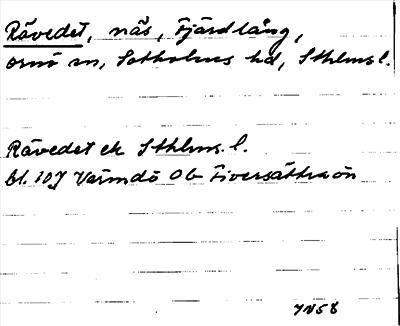 Rävedet, näs, Fjärdlång,
Ornö sn, Sotholms hd, Sthlms l.
Rävedet ek Sthlms l.
Bl. 10J Värmdö 0b Fiversättraön